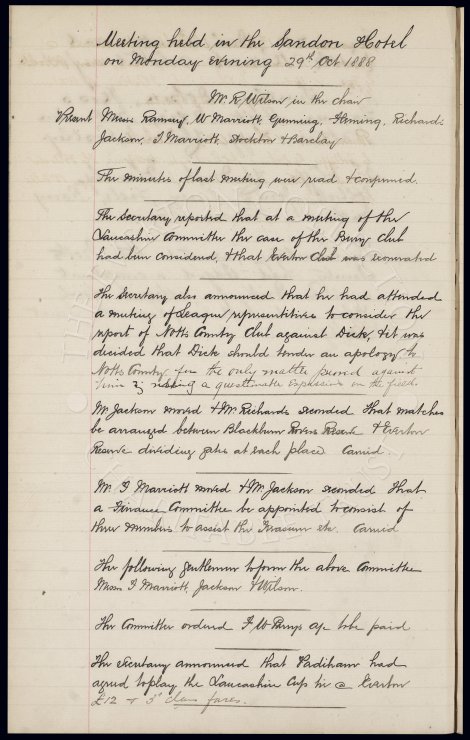 Meeting held in the Sandon Hotel
on Monday evening 29th Oct 1888
Mr R, Wilson in the chair
Present Messrs Ramsay, W Marriott, Gunning, Fleming, Richards
Jackson, T Marriott, Stockton & Barclay
The minutes of last meeting were read & confirmed.
The Secretary reported that at a meeting of the
Lancashire Committee the case of the Bury Club
had been considered, & that Everton Club was exonerated
The Secretary also announced that he had attended
a meeting of League representitives to consider the
report of Notts County Club against Dick, & it was
decided that Dick should tender an apology to
Notts County for the only matter proved against
him of making a questionable expression on the field.
Mr Jackson moved & Mr Richards seconded that matches
be arranged between Blackburn Rovers Reserve & Everton
Reserve dividing gates at each place Carried.
Mr T Marriott moved & Mr Jackson seconded that
a Finance Committee be appointed to consist of
three members to assist the Treasurer etc. Carried
The following gentlemen to form the above Committee
Messrs T Marriott, Jackson & Wilson.
The Committee ordered F W Parrys a/c to be paid
The Secretary announced that Padiham had
agreed to play the Lancashire Cup tie @ Everton
£12 & 3rd class fares.